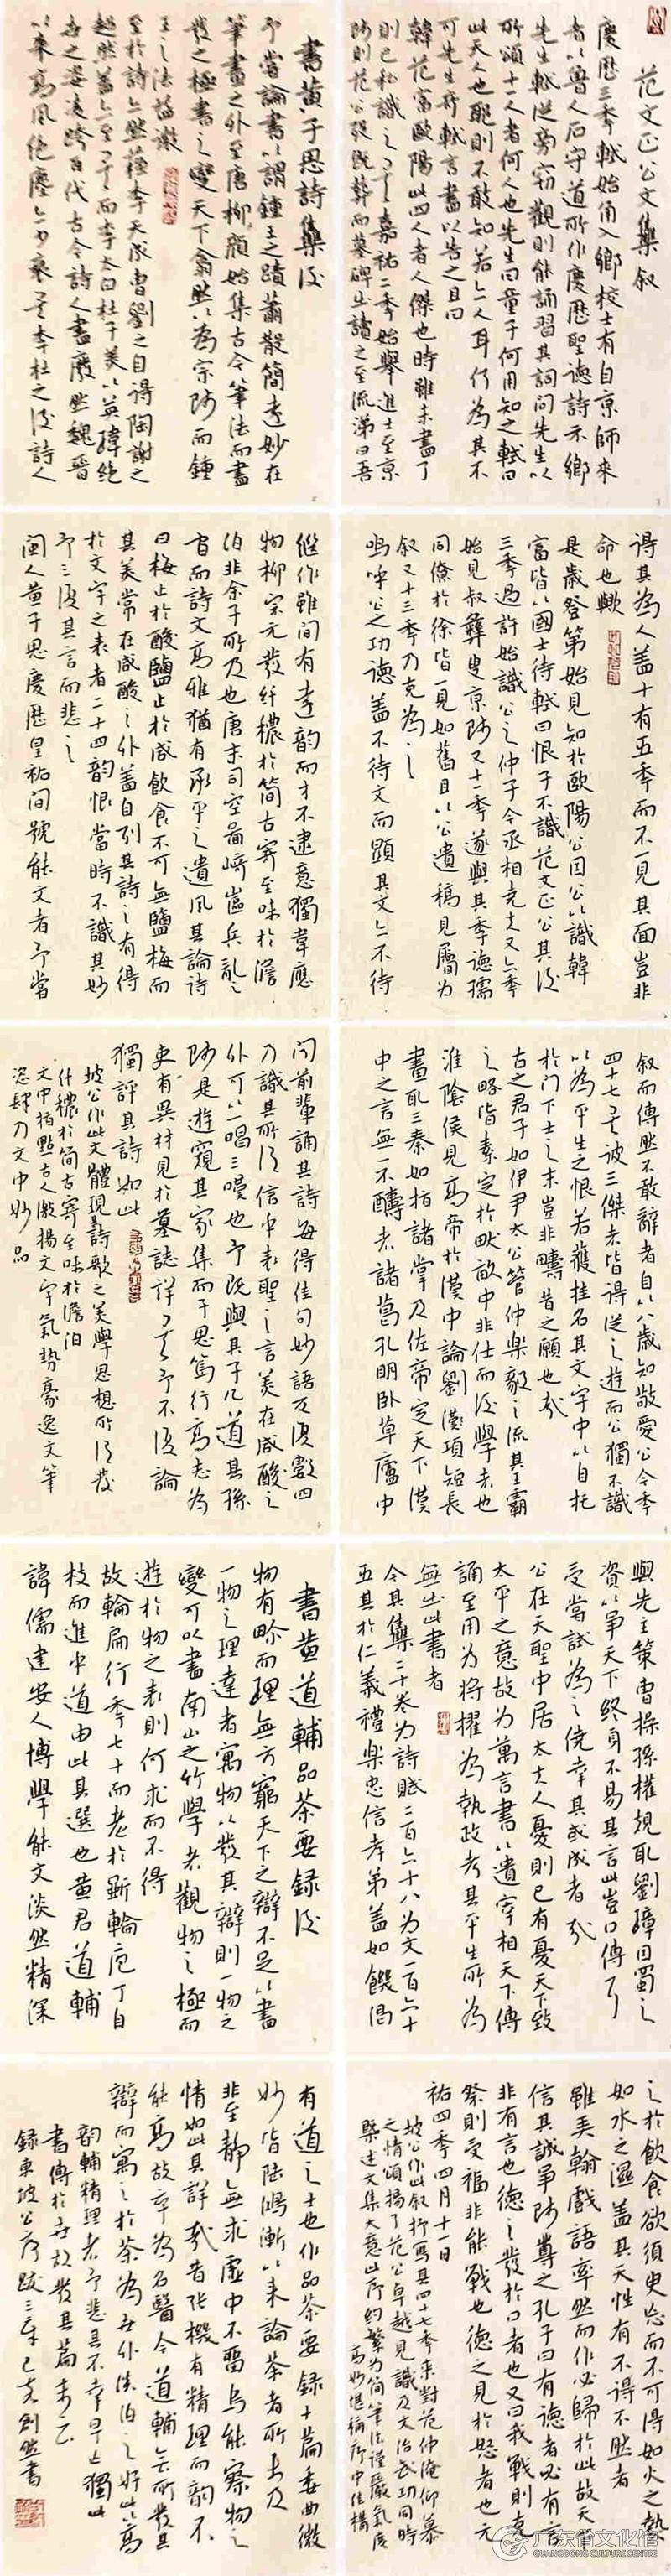 范文正公文集叙
慶歷三季軾始角入鄉校士有自京師來
者以魯人石守道所作慶歷聖德詩示鄉
先生軾從旁窃觀則能誦習其詞問先生以
所頌十一人者何人也先生曰童子何用知之軾曰
此天人也耶則不敢知若亦人耳何為其不
可先生奇軾言盡以告之且曰
韓范富歐陽此四人者人傑也時雖未盡了
則已私識之矣嘉祐二季始舉進士至京
師則范公殁既葬而墓碑出讀之至流涕曰吾
得其為人蓋十有五季而不一見其面豈非
命也歟
是歲登第始見知於歐陽公因公以識韓
富皆以國士待軾曰恨子不識范文正公其後
三季過許始識公之仲子今丞相堯夫又六季
始見叔彝叟京師又十一季遂與其季德孺
同僚於徐皆一見如舊且以公遺稿見屬為
叙又十三季乃克為之
嗚呼公之功德蓋不待文而顯其文亦不待
叙而傳然不敢辭者自以八歲知敬愛公今季
四十七矣彼三傑者皆得從之遊而公獨不識
以為平生之恨若獲挂名其文字中以自托
於门下士之末豈非疇昔之願也哉
古之君子如伊尹太公管仲樂毅之流其王霸
之略皆素定於畎畝中非仕而後學者也
淮陰侯見高帝於漢中論劉項短長
畫取三秦如指諸掌及佐帝定天下漢
中之言無一不酬者諸葛孔明卧草廬中
與先主策曹操孫權規取劉璋因蜀之
資以爭天下終身不易其言此豈口傳耳
受嘗試為之僥幸其或成者哉
公在天聖中居太夫人憂則已有憂天下致
太平之意故為萬言書以遺宰相天下傳
誦至用為将擢為執政考其平生所為
無出此書者
今其集二十卷為詩賦二百六十八為文一百六十
五其於仁義禮樂忠信孝弟蓋如饑渴
之於飲食欲須臾忘而不可得如火之熱
如水之濕蓋其天性有不得不然者
雖弄翰戲語率然而作必歸於此故天下
信其誠爭師尊之孔子曰有德者必有言
非有言也德之發於口者也又曰我戰則克
祭則受福非能戰也德之見於怒者也元
祐四季四月十一日
坡公作此叙抒寫其四十七季來對范仲淹仰慕
之情頌揚了范公卓越見識及文治武功同時
槩述文集大意此序約繁為简筆法謹嚴氣度
高妙堪稱序中佳構
書黄子思詩集後
予嘗論書以謂鍾王之蹟蕭散簡遠妙在
筆畫之外至唐柳顔始集古今筆法而盡
發之極書之變天下翕然以為宗師而鍾
王之法益微
至於詩亦然蘇李天成曹劉之自得陶謝之
超然蓋亦至矣而李太白杜子美以英瑋絶
世之姿凌跨百代古今詩人盡廢然魏晋
以來高風绝塵亦少衰矣李杜之後詩人
繼作雖間有遠韵而才不逮意獨韋應
物柳宗元發纤穠於簡古寄至味於澹
泊非余子所及也唐末司空圖崎嶇兵亂之
間而詩文高雅猶有承平之遺風其論詩
曰梅止於酸鹽止於咸飲食不可無鹽梅而
其美常在咸酸之外蓋自列其詩之有得
於文字之表者二十四韵恨當時不識其妙
予三復其言而悲之
閩人黄子思慶歷皇祐間號能文者予嘗
聞前輩誦其詩每得佳句妙語反復數四
乃識其所謂信乎表聖之言美在咸酸之
外可以一唱三嘆也予既與其子几道其孫
師是遊窺其家集而子思篤行高志為
吏有異材見於墓誌詳矣予不復論
獨評其詩如此
坡公作此文體現詩歌之美學思想所谓發
什穠於简古寄至味於澹泊
文中指點古人激揚文字氣勢豪逸文筆
恣肆乃文中妙品
書黄道輔品茶要録後
物有畛而理無方窮天下之辯不足以盡
一物之理達者寓物以發其辯則一物之
變可以盡南山之竹學者觀物之極而
遊於物之表則何求而不得
故輪扁行季七十而老於斲輪庖丁自
枝而進乎道由此其選也黄君道輔
諱儒建安人博學能文淡然精深
有道之士也作品茶要録十篇委曲微
妙皆陆鴻漸以来論茶者所未及
非至静無求虚中不留烏能察物之
情如此其詳哉昔张機有精理而韵不
能高故卒為名醫今道輔無所發其
辯而寓之於茶為世外淡泊之好此以高
韵輔精理者予悲其不幸早亡獨此
書傳於世故發其篇末云
録東坡公序跋三章己亥創然書
广东省文化馆
GUANGDONG CULTURE CENTRE